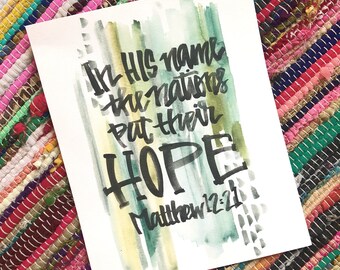 In HIS name
the nations
put their
HOPE
Matthew 12:21